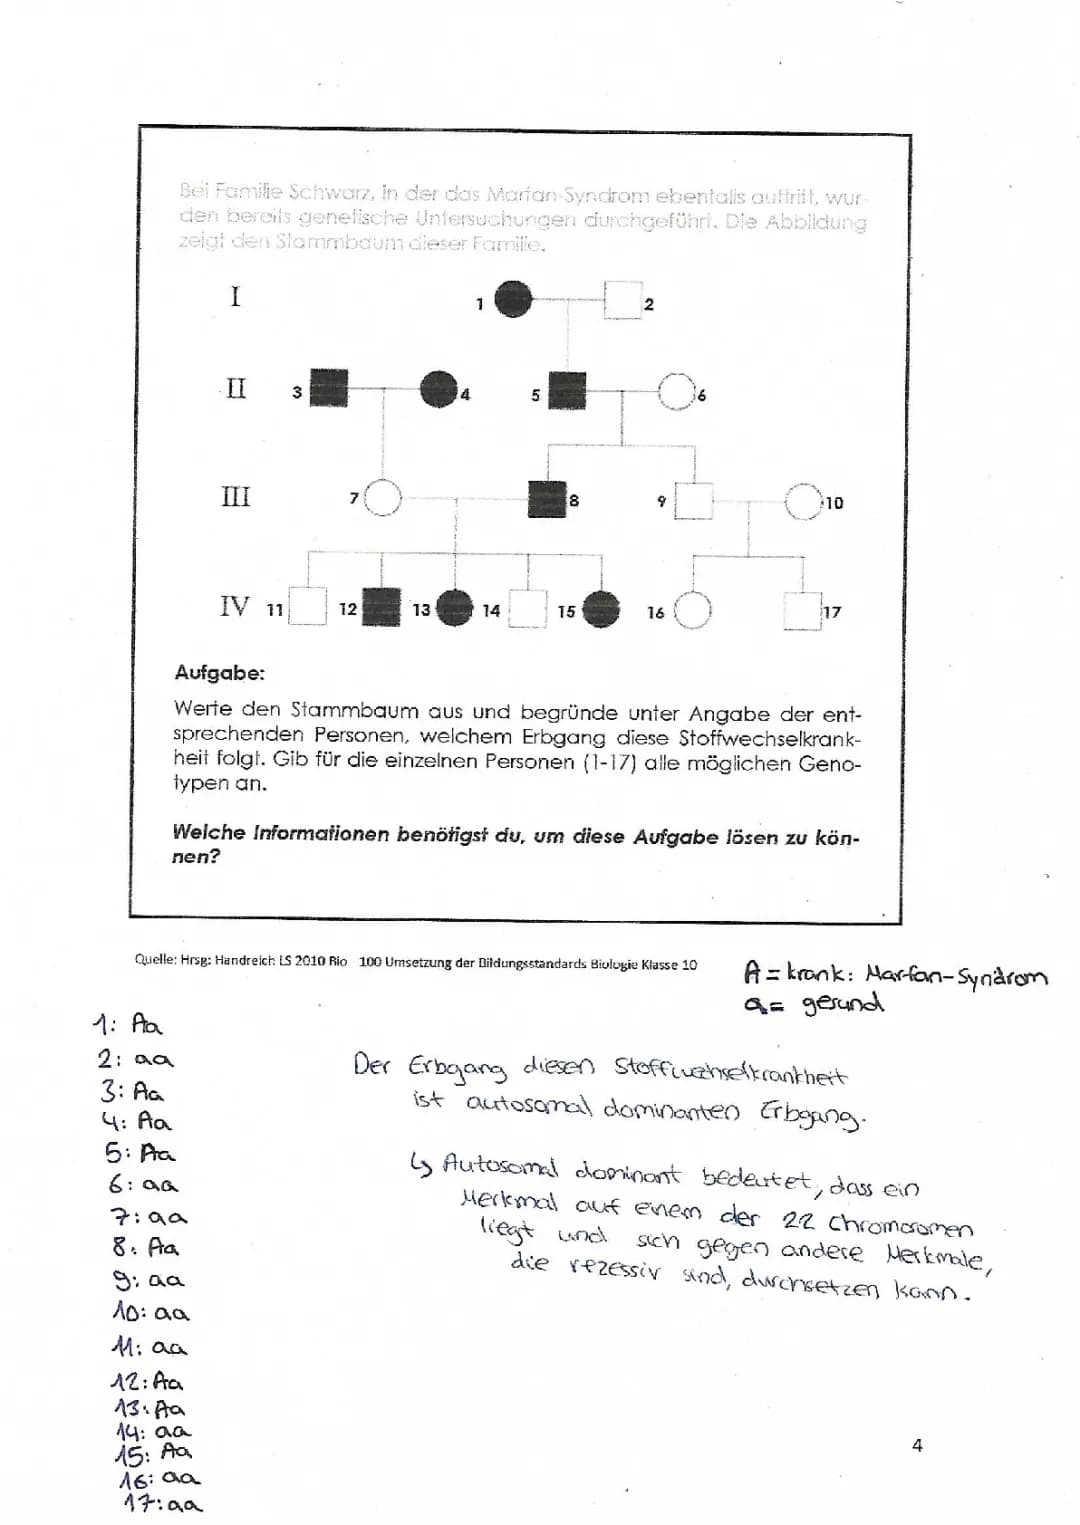 Bei Familie Schwarz, in der das Marfan-Syndrom ebenfalls auftritt, wur-
den bereits genetische Untersuchungen durchgeführt. Die Abbildung
zeigt den Stammbaum dieser Familie.
I
1
2
II
3
4
5
6
III
7
8
9
10
IV
11
12
13
14
15
16
17
Aufgabe:
Werte den Stammbaum aus und begründe unter Angabe der ent-
sprechenden Personen, welchem Erbgang diese Stoffwechselkrank-
heit folgt. Gib für die einzelnen Personen (1-17) alle möglichen Geno-
typen an.
Welche Informationen benötigst du, um diese Aufgabe lösen zu kön-
nen?
Quelle: Hrsg: Handreich LS 2010 Bio 100 Umsetzung der Bildungsstandards Biologie Klasse 10
A = krank: Marfan-Syndrom
a = gesund
1: Aa
2: aa
3: Aa
4: Aa
5: Aa
6: aa
7: aa
8: Aa
9: aa
10: aa
11: aa
12: Aa
13: Aa
14: aa
15: Aa
16: aa
17: aa
Der Erbgang diesen Stoffwechselkrankheit
ist autosomal dominanten Erbgang.
↳ Autosomal dominant bedeutet, dass ein
Merkmal auf einem der 22 Chromosomen
liegt und sich gegen andere Merkmale,
die rezessiv sind, durchsetzen kann.
4